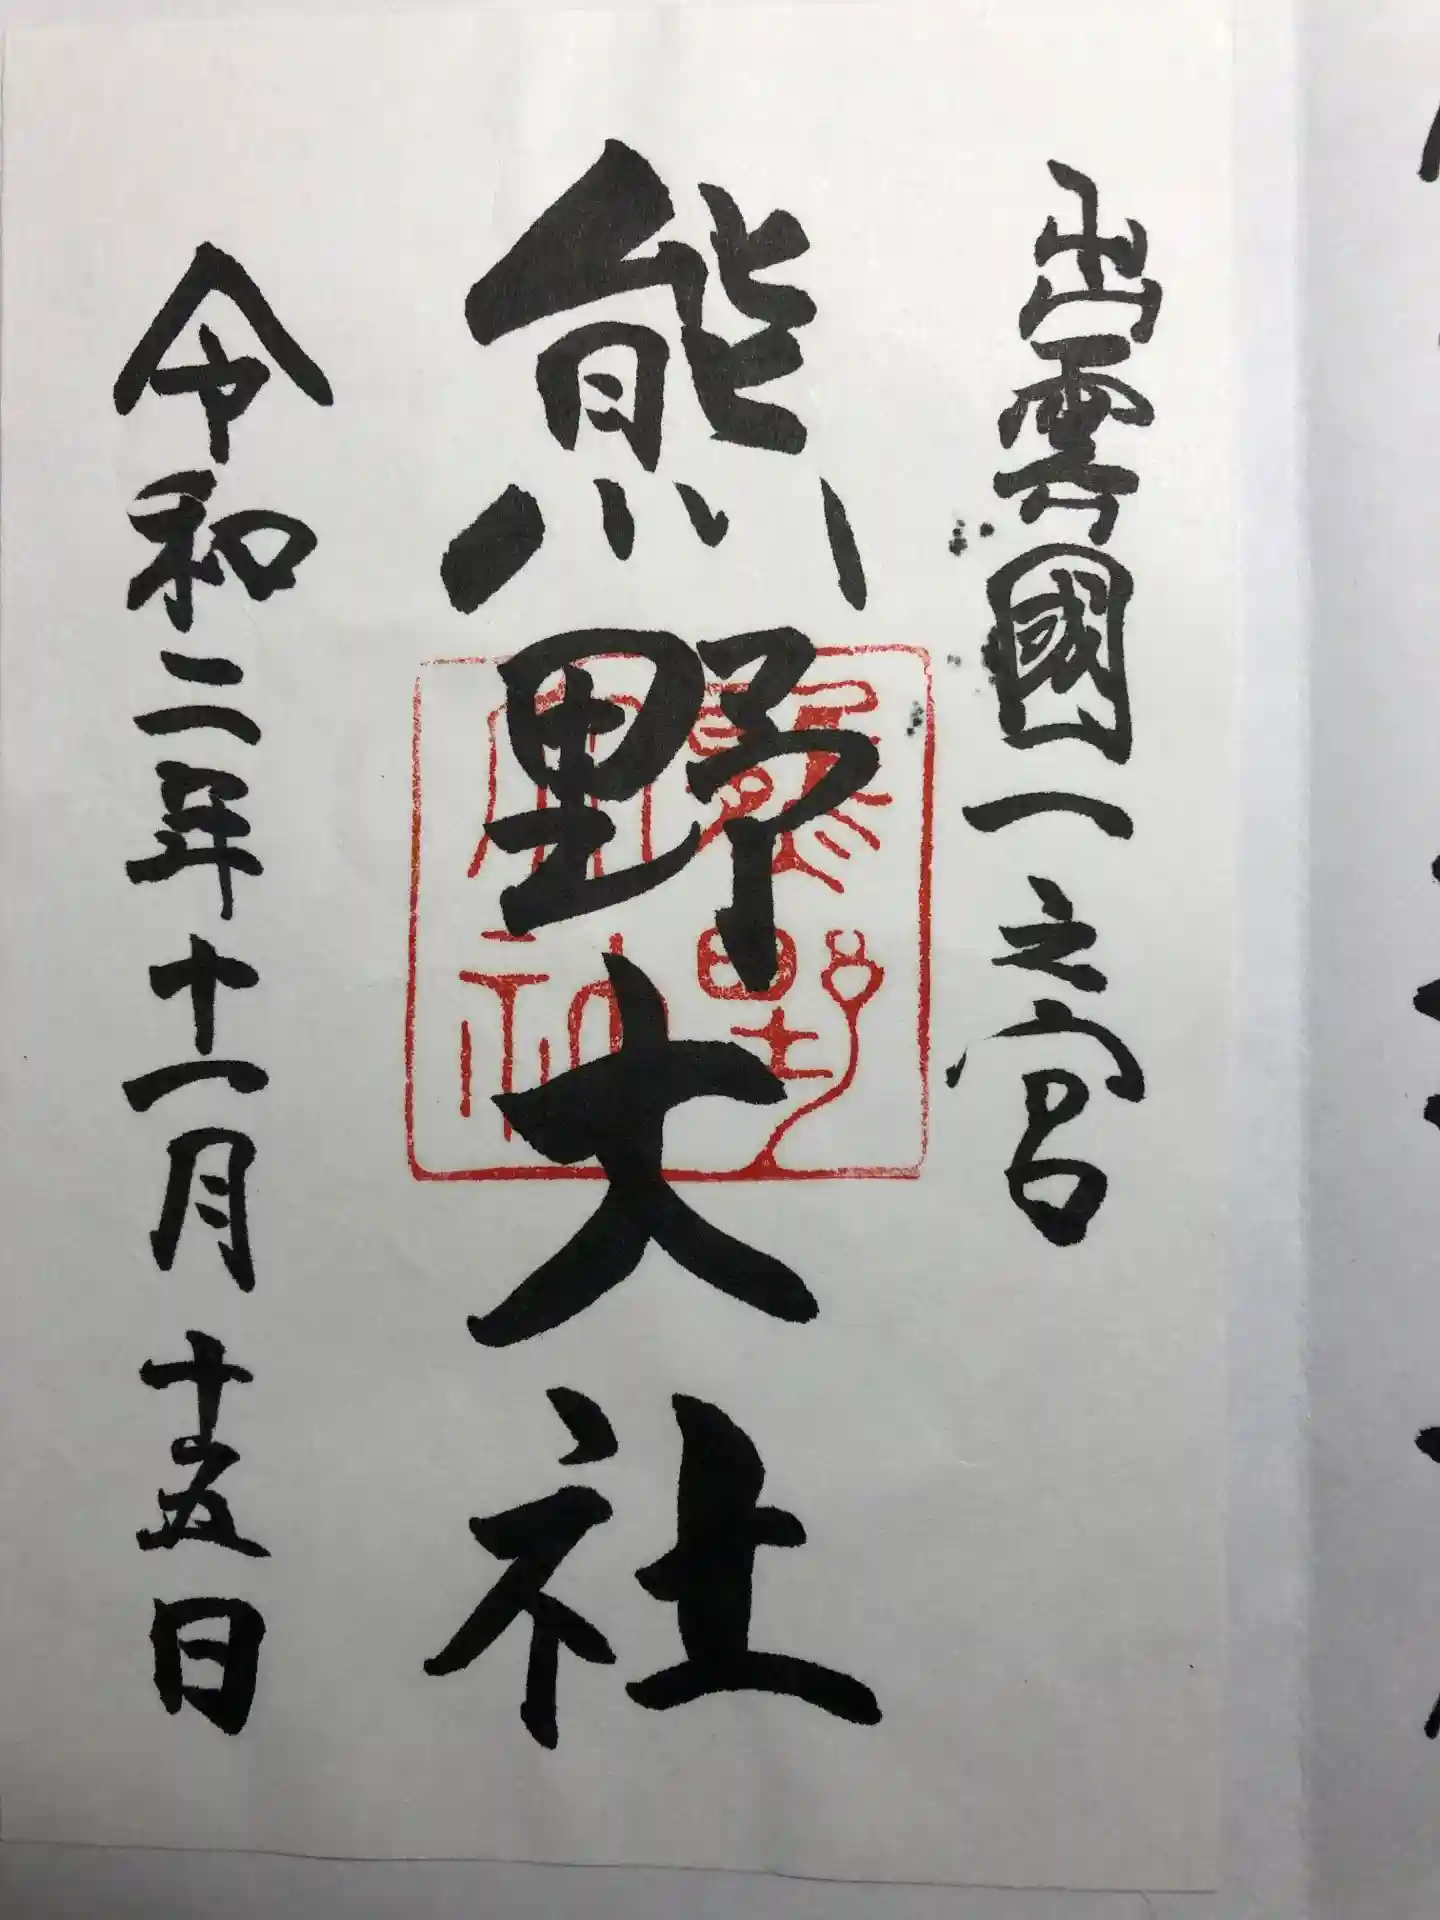 出雲國一之宮
熊野大社
熊野大社
令和二年十一月十五日